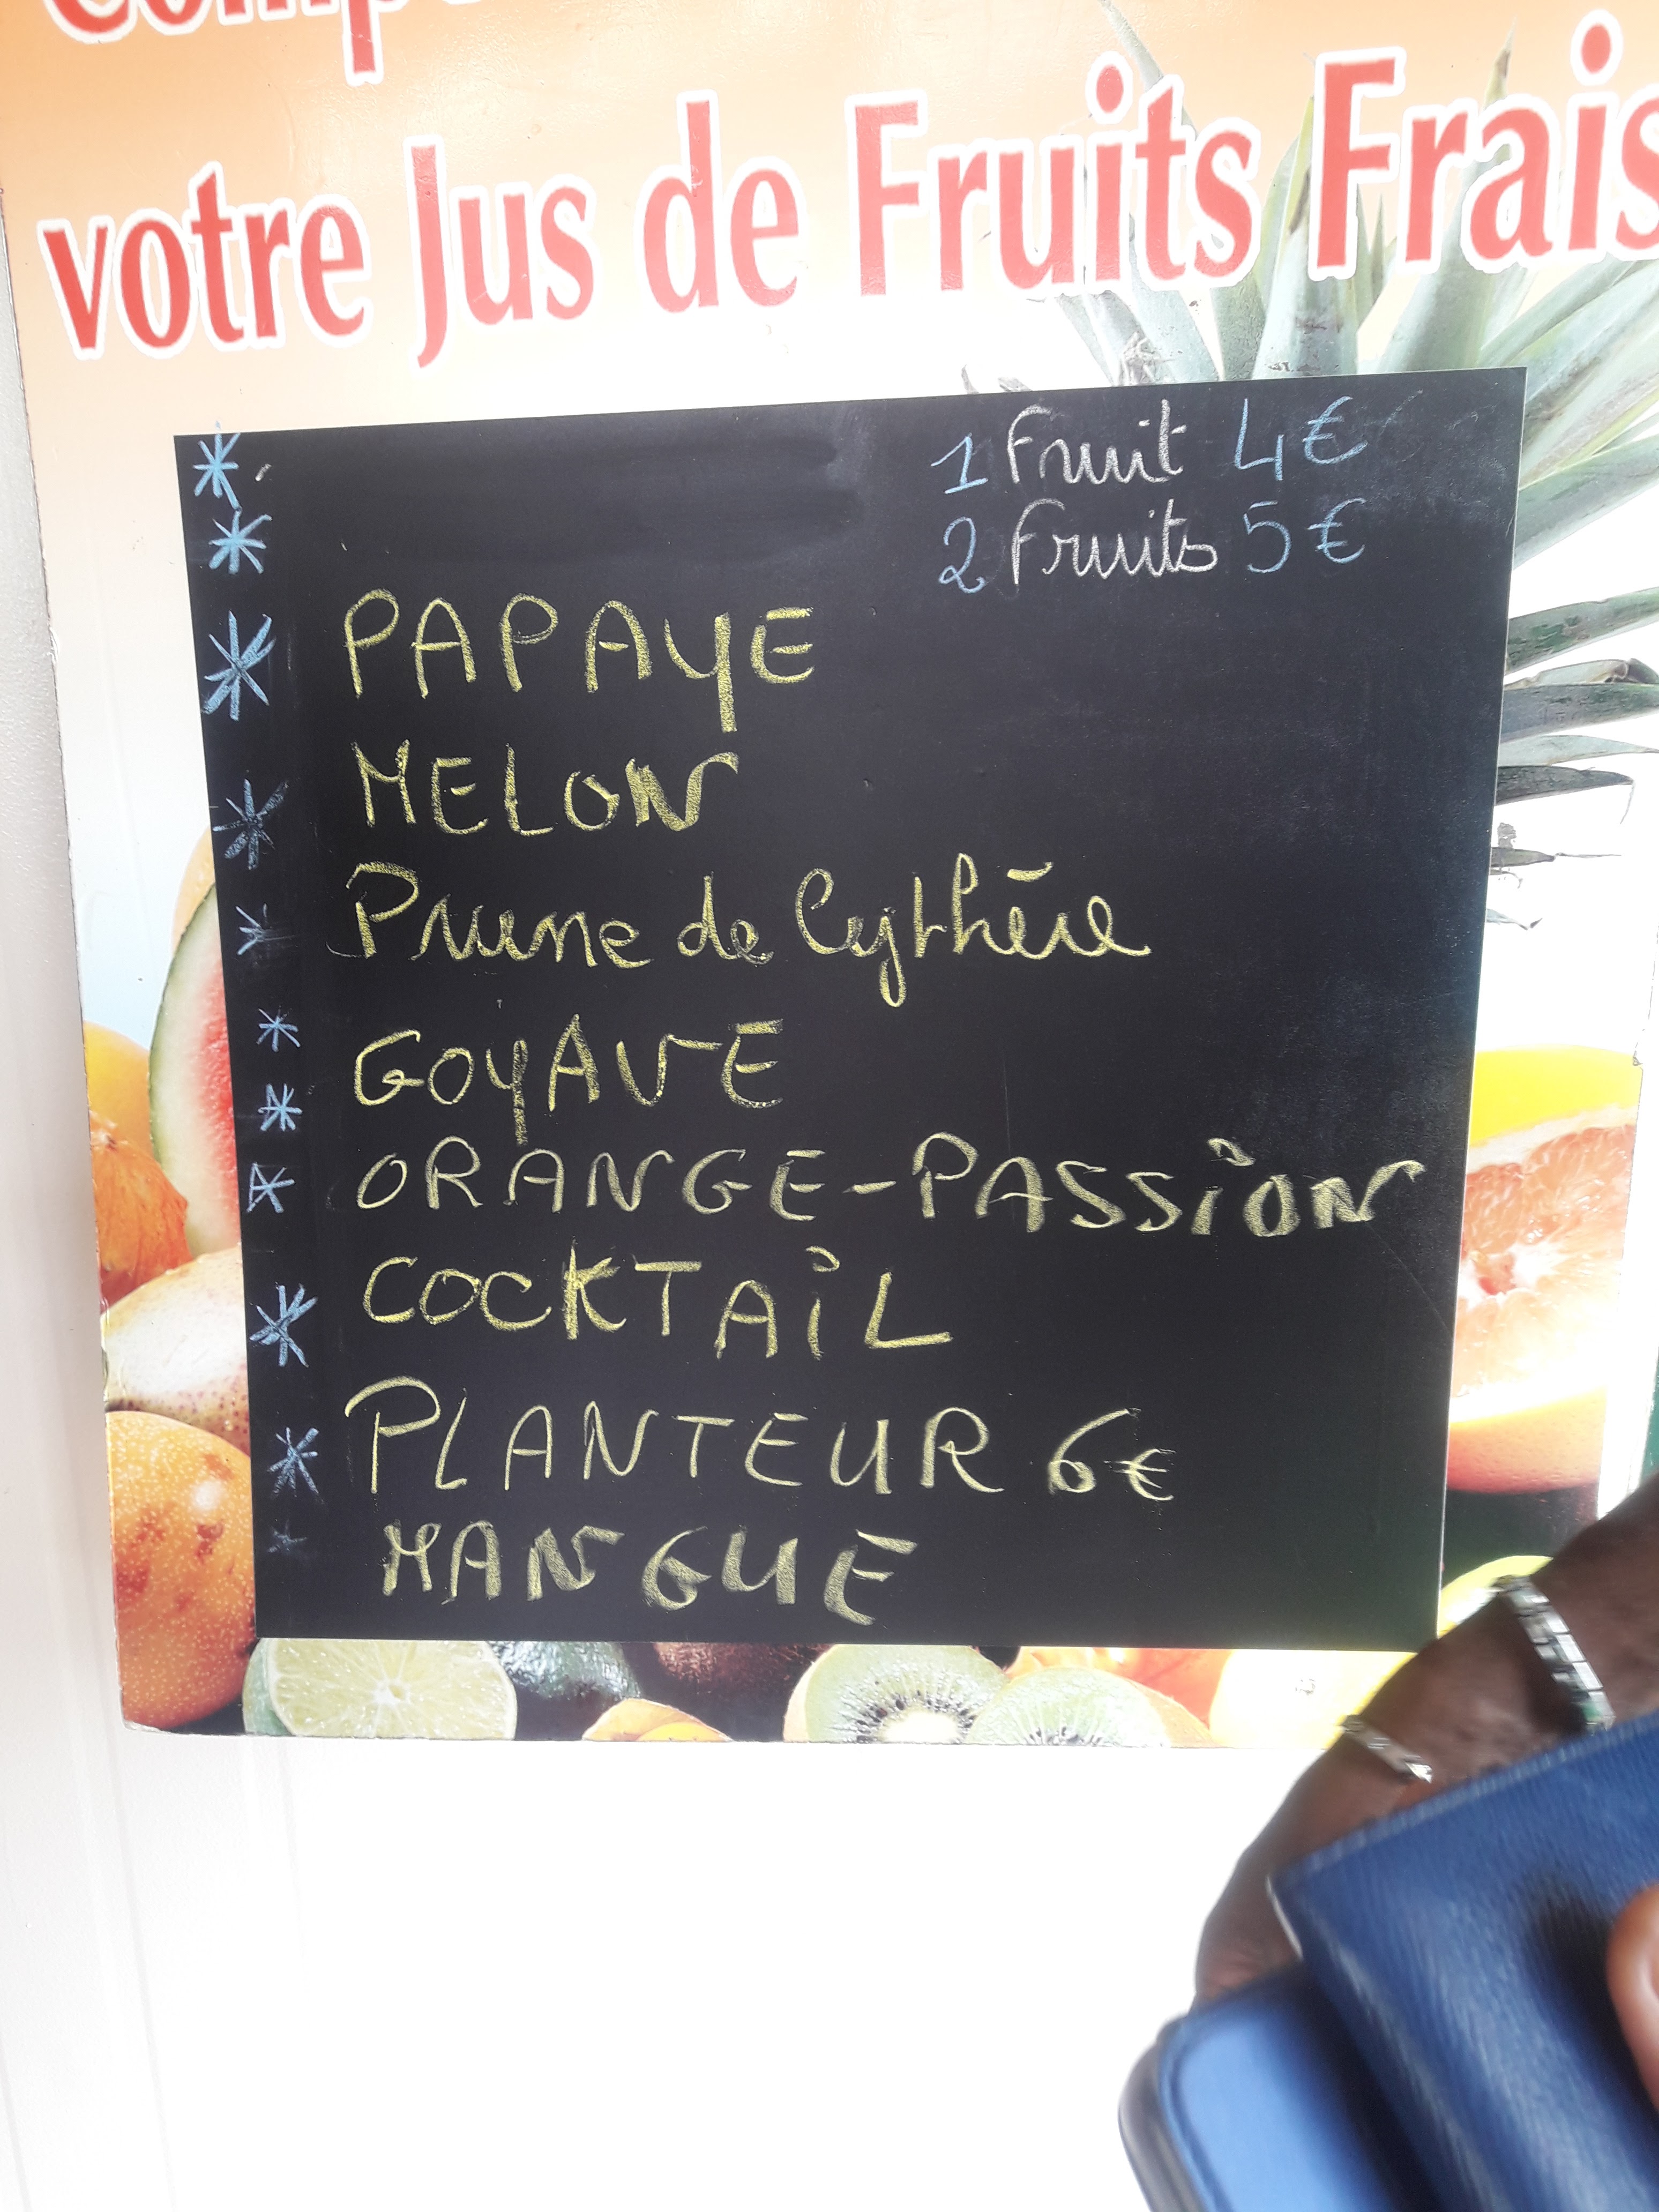 votre Jus de Fruits Frais
1 Fruit 4€
2 Fruits 5€
PAPAYE
MELON
Prune de Cythère
GOYAVE
ORANGE-PASSION
COCKTAIL
PLANTEUR 6€
MANGUE